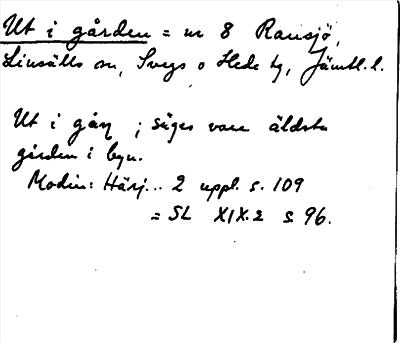 Ut i gården = nr 8 Ransjö,
Linsälls sn, Svegs o Hede tg, Jämtl. l.
Ut i gårn ; säges vara äldsta
gården i byn.
Modin: Härj... 2 uppl. s. 109
= SL XIX.2 s. 96.